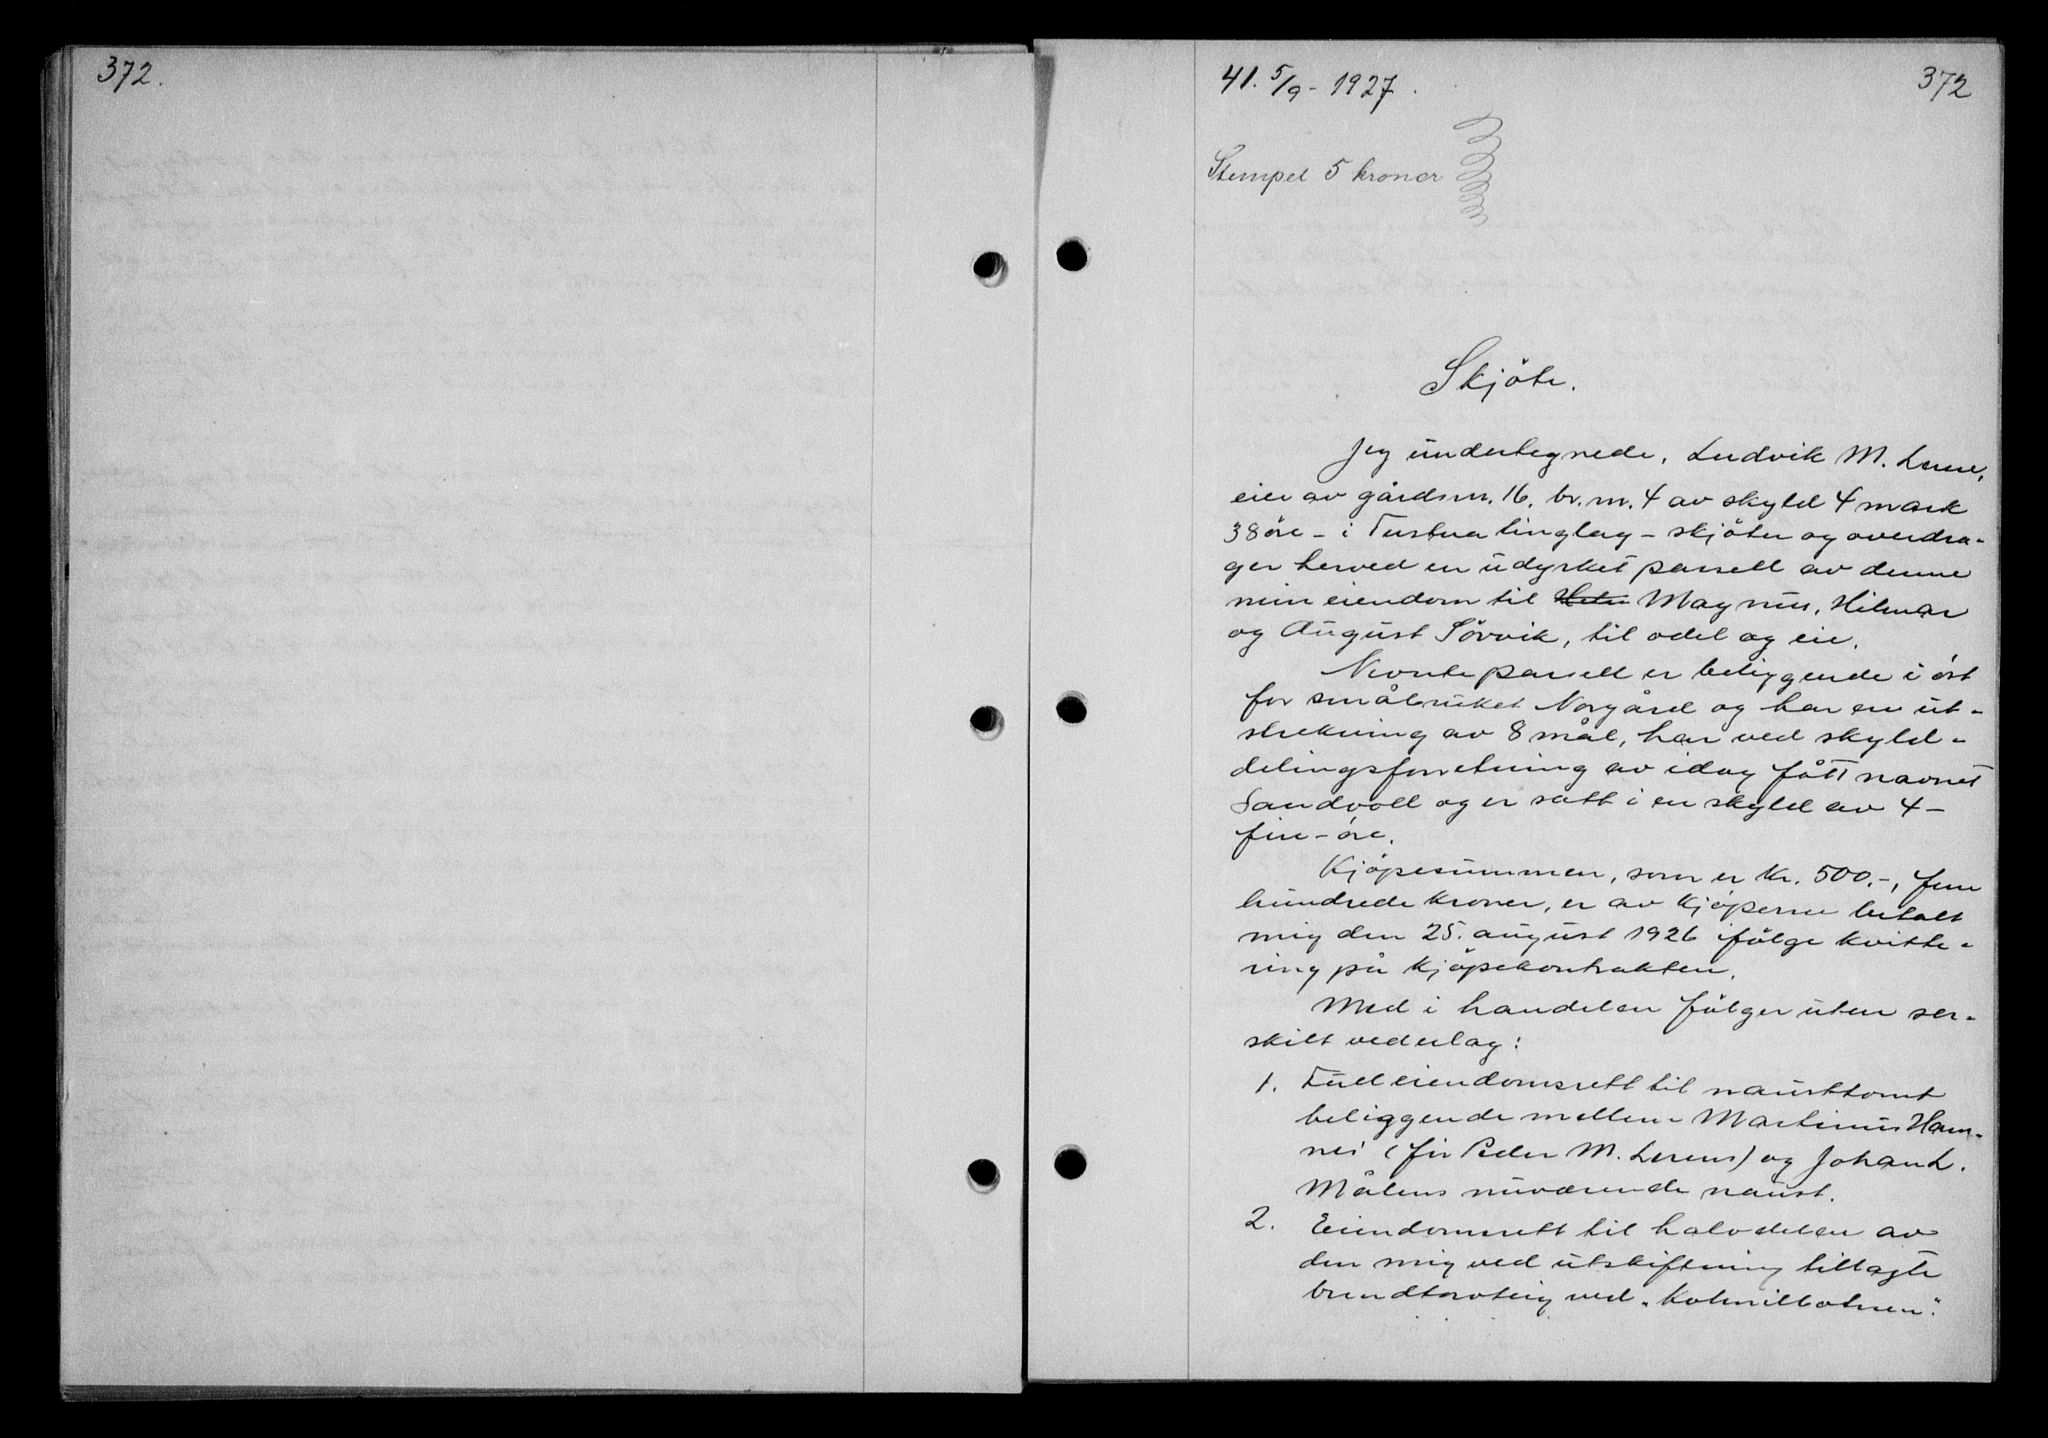 372.
41. 5/9 - 1927.
372
Stempel 5 kroner
Skjöte.
Jeg undertegnede, Ludvik M.
eier av gårdsnr. 16, br. nr. 4 av skyld 4 mark
38 öre - i Tustna tinglag - skjöter og overdra-
ger herved en udyrket parsell av denne
min eiendom til Magnus, Hilmar
og August Sörvik, til odel og eie.
Nevnte parsell er beliggende i öst
for småbruket Norgård og har en ut-
strekning av 8 mål, har ved skyld-
delingsforretning av idag fått navnet
Sandvoll og er satt i en skyld av 4-
fire-öre.
Kjöpesummen, som er kr. 500.-, fem
hundrede kroner, er av kjöperne betalt
mig den 25. august 1926 ifölge kvitte-
ring på kjöpekontrakten.
Med i handelen fölger uten ser-
skilt vederlag:
1. Full eiendomsrett til nausttomt
beliggende mellem Martinus Ham-
nes (för Peder M. ) og Johan L.
Målens nuværende naust.
2. Eiendomsrett til halvdelen av
den mig ved utskiftning tillagte
brendtorvteig ved